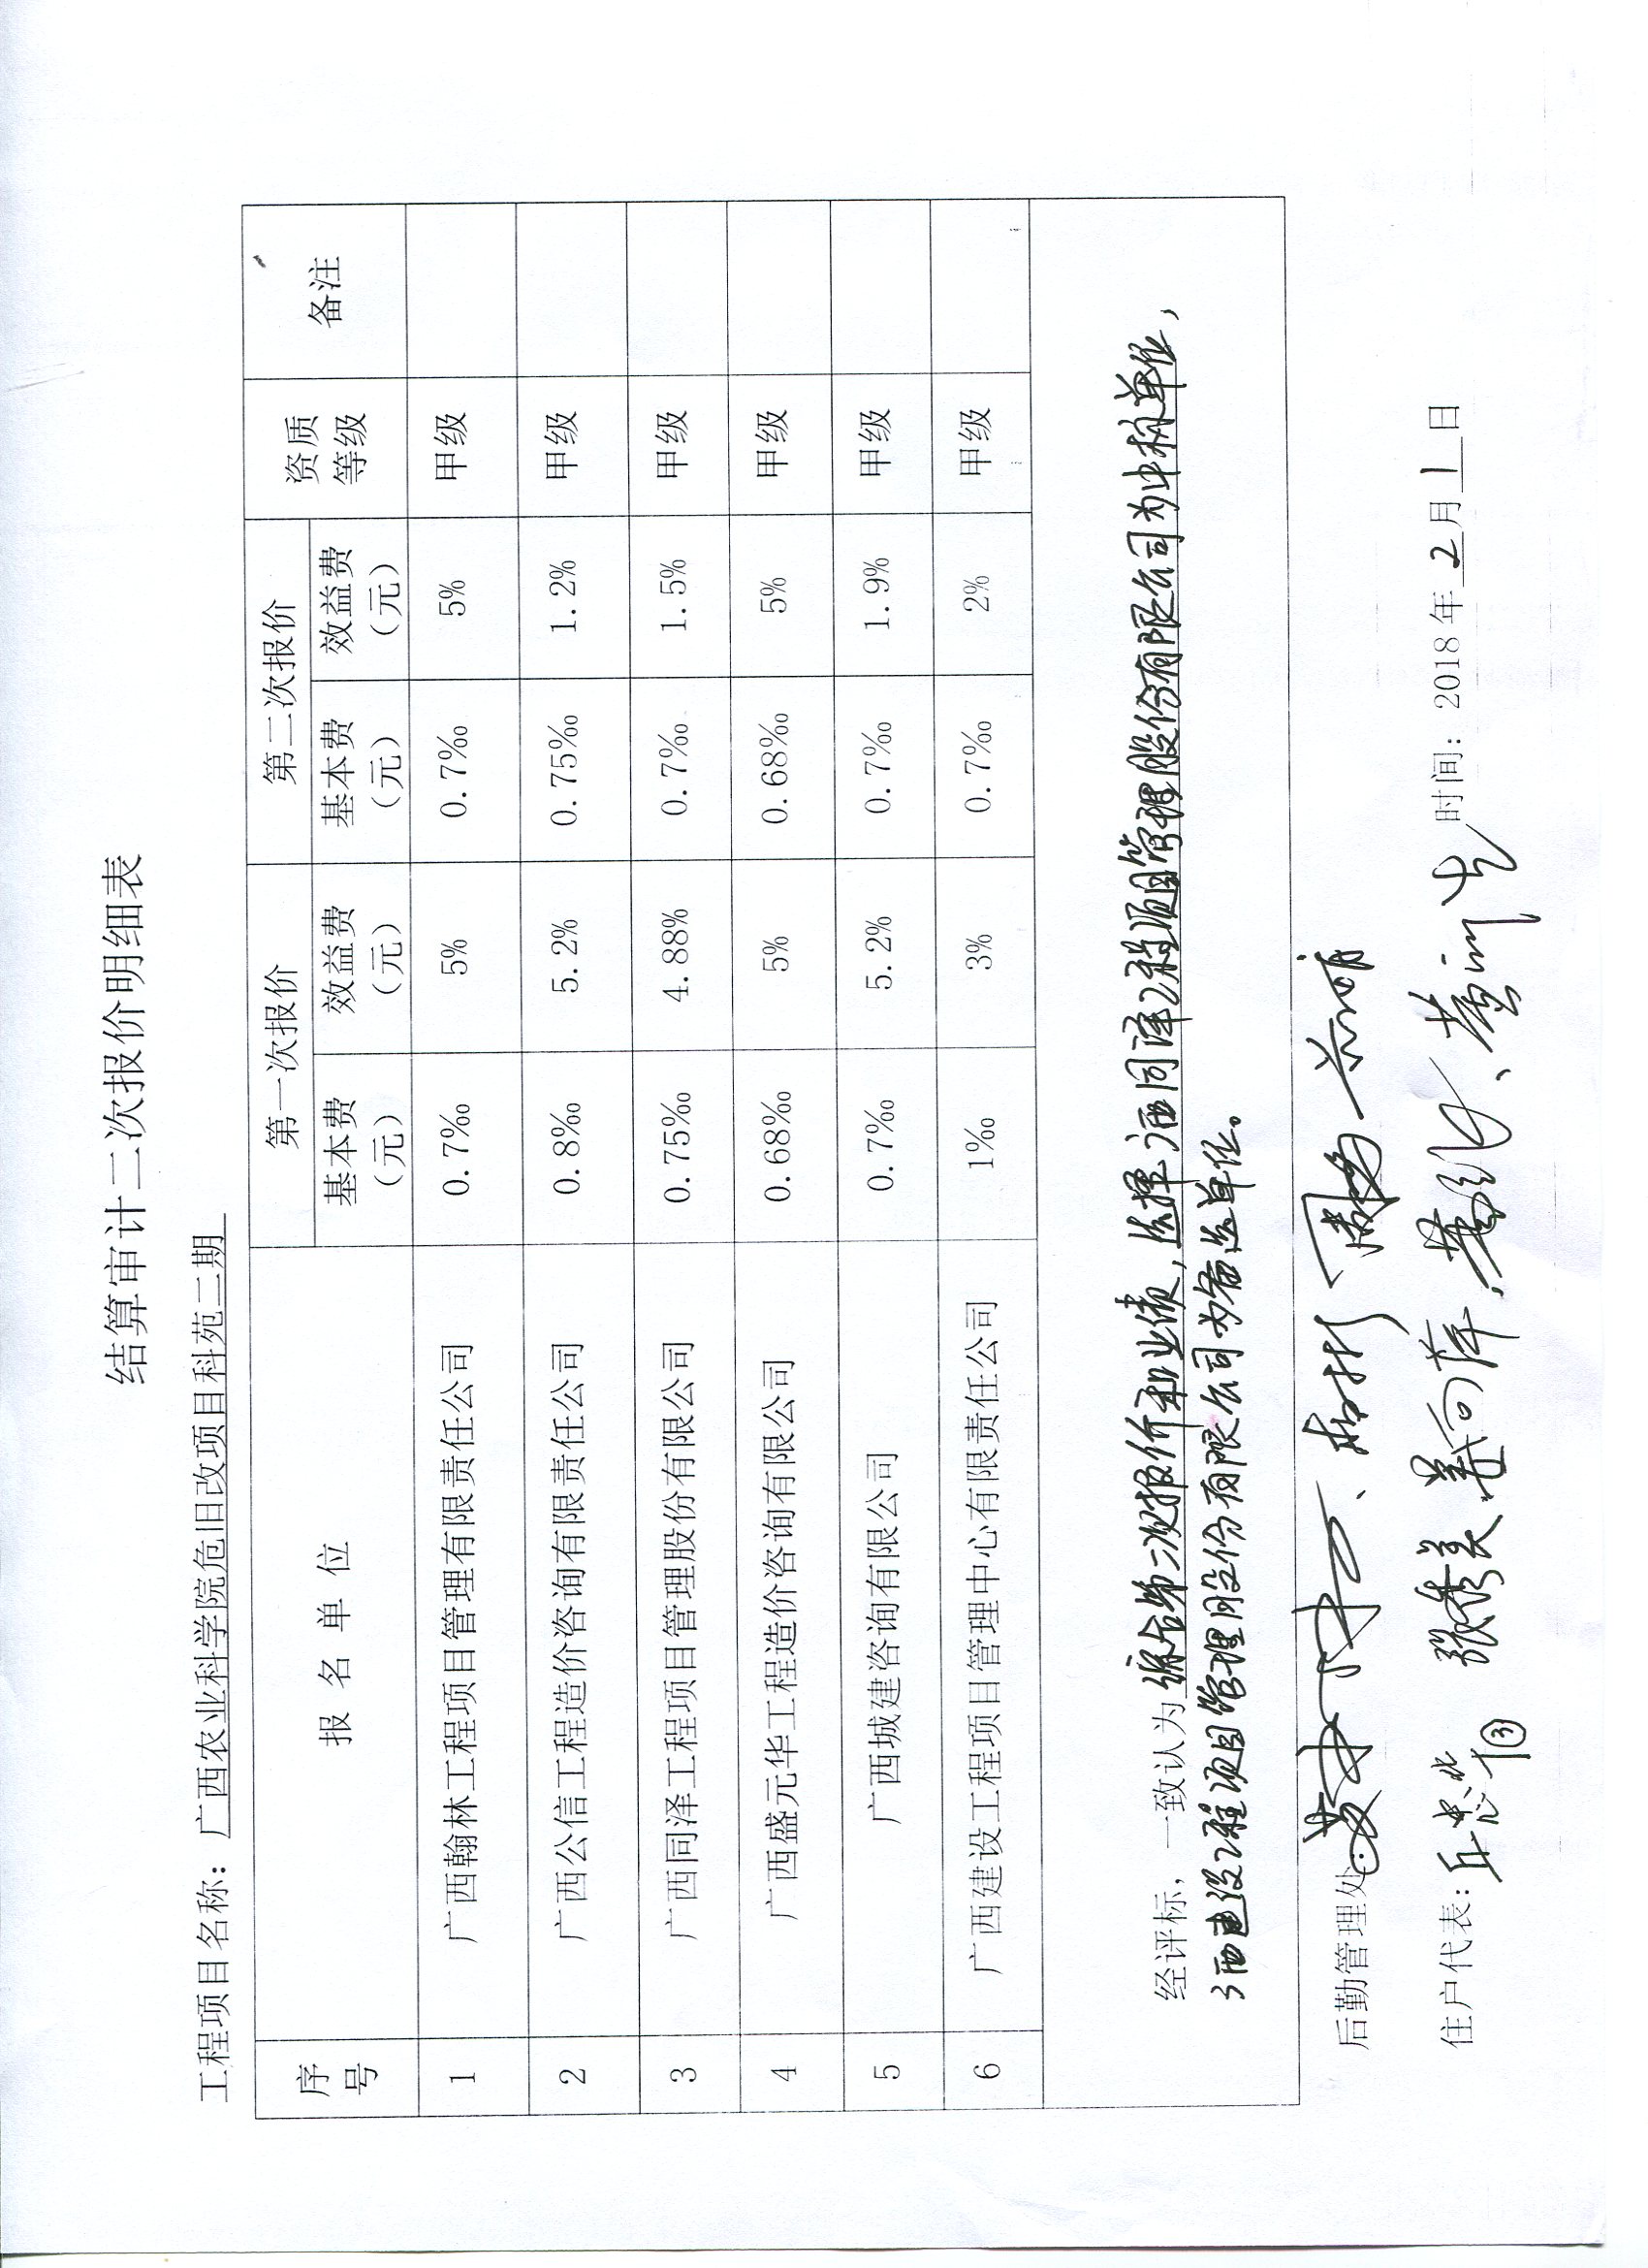 结算审计二次报价明细表
工程项目名称：广西农业科学院危旧改项目科苑二期
序号 报名单位 第一次报价 第二次报价 资质等级 备注
基本费（元） 效益费（元） 基本费（元） 效益费（元）
1 广西翰林工程项目管理有限责任公司 0.7‰ 5% 0.7‰ 5% 甲级
2 广西公信工程造价咨询有限责任公司 0.8‰ 5.2% 0.75‰ 1.2% 甲级
3 广西同泽工程项目管理股份有限公司 0.75‰ 4.88% 0.7‰ 1.5% 甲级
4 广西盛元华工程造价咨询有限公司 0.68‰ 5% 0.68‰ 5% 甲级
5 广西城建咨询有限公司 0.7‰ 5.2% 0.7‰ 1.9% 甲级
6 广西建设工程项目管理中心有限责任公司 1‰ 3% 0.7‰ 2% 甲级
经评标，一致认为综合第二次报价和业绩，选择广西同泽工程项目管理股份有限公司为中标单位，
广西建设工程项目管理股份有限公司为备选单位。
后勤管理处
住户代表： 张秀美 时间：2018年2月1日